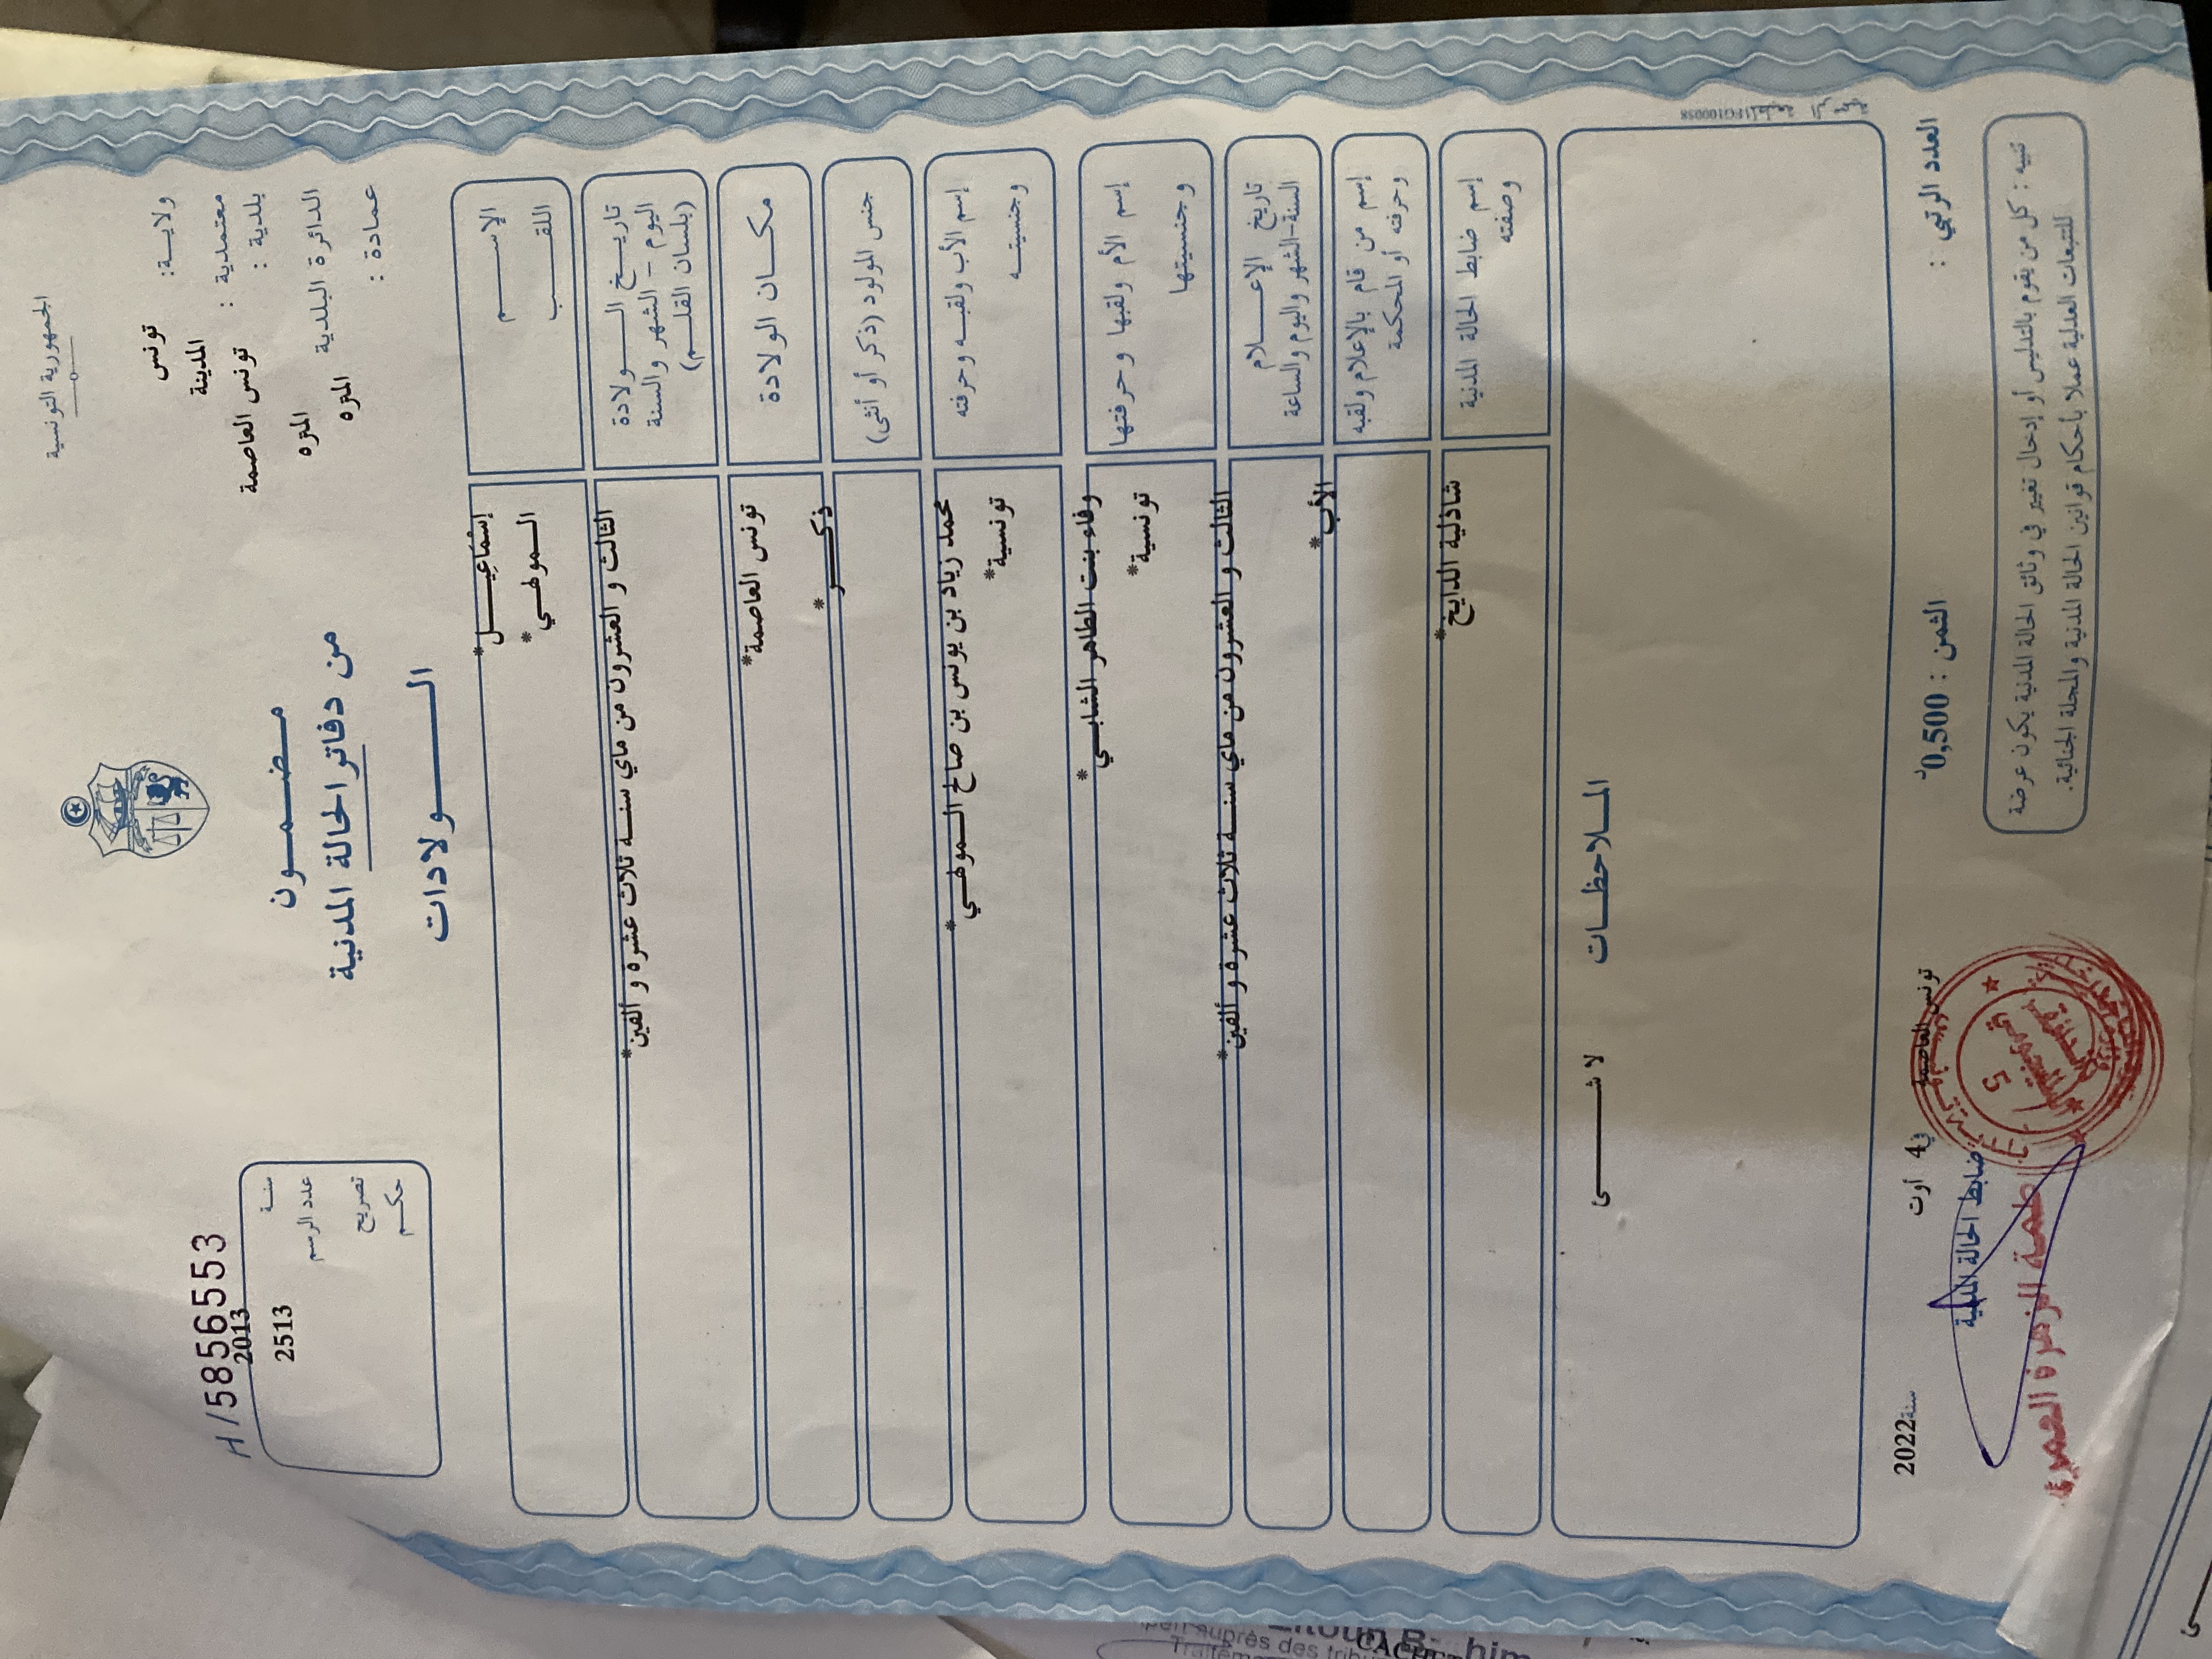 الجمهورية التونسية
ولاية: تونس
معتمدية : المدينة
بلدية : تونس العاصمة
الدائرة البلدية المنزه
عمادة : المنزه
H/5856553
سنة 2013
عدد الرسم 2513
تصريح
حكم
مضمون
من دفاتر الحالة المدنية
الولادات
الإسم إسماعيل*
اللقب المولهي*
تاريخ الولادة
اليوم - الشهر والسنة
(بلسان القلم)
الثالث و العشرون من ماي سنة ثلاث عشرة و ألفين*
مكان الولادة تونس العاصمة*
جنس المولود (ذكر أو أنثى) ذكر*
إسم الأب ولقبه وحرفته محمد زياد بن يونس بن صالح المولهي*
وجنسيته تونسية*
إسم الأم ولقبها وحرفتها وفاء بنت الطاهر الشابي*
وجنسيتها تونسية*
تاريخ الإعلام
السنة-الشهر واليوم والساعة
الثالث و العشرون من ماي سنة ثلاث عشرة و ألفين*
إسم من قام بالإعلام ولقبه
وحرفته أو المحكمة
الأب*
إسم ضابط الحالة المدنية
وصفته
شاذلية الدايخ*
الملاحظات
لا شئ
المطبعة الرسمية FG100058
العدد الرتبي :
الثمن : 0,500د
تونس العاصمة في 4 أوت سنة 2022
ضابط الحالة المدنية
5
تنبيه : كل من يقوم بالتدليس أو إدخال تغيير في وثائق الحالة المدنية يكون عرضة
للتتبعات العدلية عملا بأحكام قوانين الحالة المدنية والمجلة الجنائية.
auprès des
CACHET